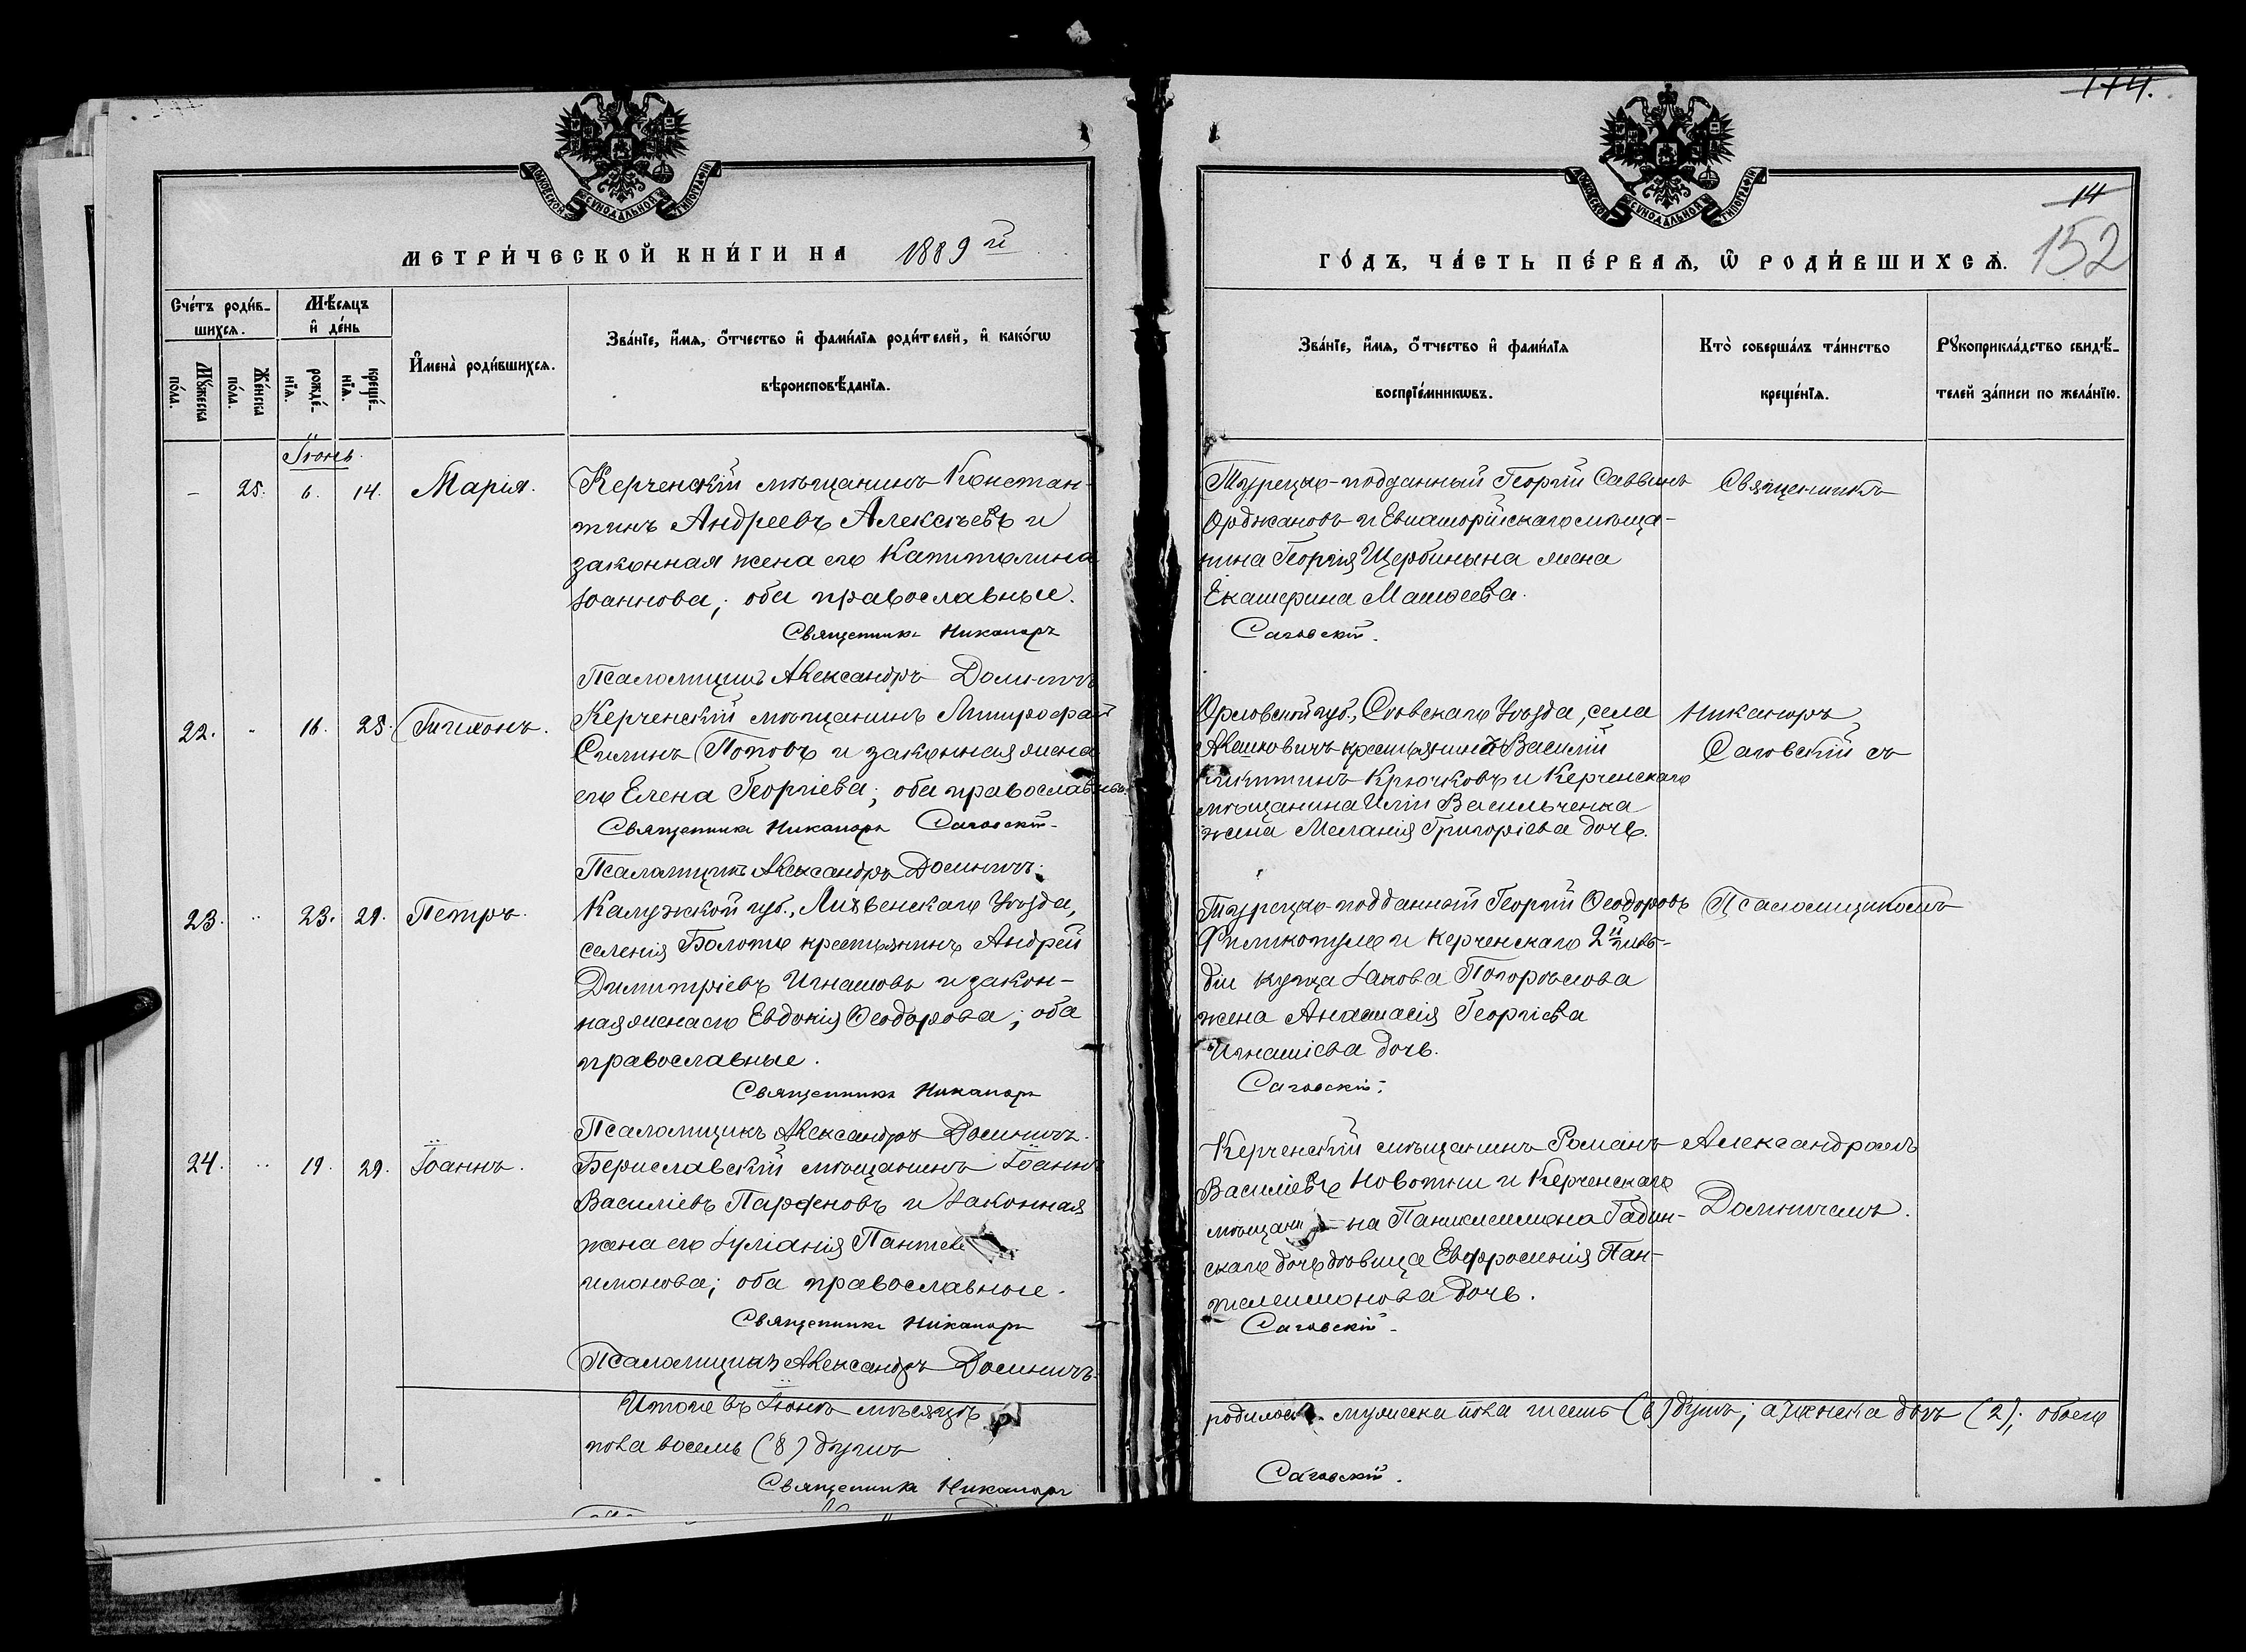 174.
МОСКОВСКОЙ СУНОДАЛЬНОЙ ТИПОГРАФІИ
МЕТРИ́ЧЕСКОЙ КНИ́ГИ НА 1889й
Сче́тъ роди́в-
шихся.
Мѣ́сяцъ
и҆ де́нь
Му́жеска
по́ла.
Же́нска
по́ла.
рожде́-
нїя.
креще́-
нїя.
И҆мена̀ роди́вшихся.
Зва́нїе, и҆́мя, ѻ҆́тчество и҆ фами́лїя роди́телей, и҆ како́гѡ
вѣроисповѣ́данїя.
Іюнь.
– 25. 6. 14. Марія.
Керченскій мѣщанинъ Констан-
тинъ Андреевъ Алексѣевъ и
законная жена его Капитолина
Іоаннова; оба православные.
Священникъ Никаноръ
Псаломщикъ Александръ Долиничъ
22. " 16. 25. Тихонъ.
Керченскій мѣщанинъ Митрофан
Силинъ Поповъ и законная жена
его Елена Георгіева; оба православные.
Священникъ Никаноръ Саговскій
Псаломщикъ Александръ Долиничъ.
23. " 23. 29. Петръ.
Калужской губ., Лихвенскаго Уѣзда,
селенія Болото крестьянинъ Андрей
Димитріевъ Игнатовъ и закон-
ная жена его Евдокія Ѳеодорова; оба
православные.
Священникъ Никаноръ
Псаломщикъ Александръ Долиничъ.
24. " 19. 29. Іоаннъ.
Бериславскій мѣщанинъ Іоаннъ
Василіевъ Парфеновъ и законная
жена его Іуліанія Пантеле
имонова; оба православные.
Священникъ Никаноръ
Псаломщикъ Александръ Долиничъ.
Итого въ Іюнѣ мѣсяцѣ
пола восемь (8) душъ
Священникъ Никаноръ
МОСКОВСКОЙ СУНОДАЛЬНОЙ ТИПОГРАФІИ
14
152
ГО́ДЪ, ЧА́СТЬ ПЕ́РВАЯ, Ѡ҆ РОДИ́ВШИХСЯ.
Зва́нїе, и҆́мя, ѻ҆́тчество и҆ фами́лїя
воспрїе́мникѡвъ.
Кто̀ соверша́лъ та́инство
креще́нїя.
Рꙋкоприкла́дство свидѣ́-
телей за́писи по жела́нїю.
Турецко-подданный Георгій Саввинъ
Орджановъ и Евпаторійскаго мѣща-
нина Георгія Щербинына жена
Екатерина Матѳеева.
Саговскій.
Священникъ
Орловской губ., Сѣвскаго Уѣзда, села
крестьянинъ Василій
Никитинъ Крючковъ и Керченскаго
мѣщанина Иліи Васильченка
жена Меланія Григоріева дочь.
Никаноръ
Саговскій съ
Турецко-подданный Георгій Ѳеодоровъ
и Керченскаго 2й гиль-
діи купца Іакова
жена Анастасія Георгіева
Игнатіева дочь.
Саговскій.
Псаломщикомъ
Керченскій мѣщанинъ Романъ
Василіевъ и Керченскаго
мѣщани – на Пантелеимона Гадин-
скаго вдовица Евфросинія Пан-
телеимонова дочь.
Саговскій
Александромъ
Долиничемъ.
родилось мужеска пола шесть (6) душъ; а женска двѣ (2); обоего
Саговскій.